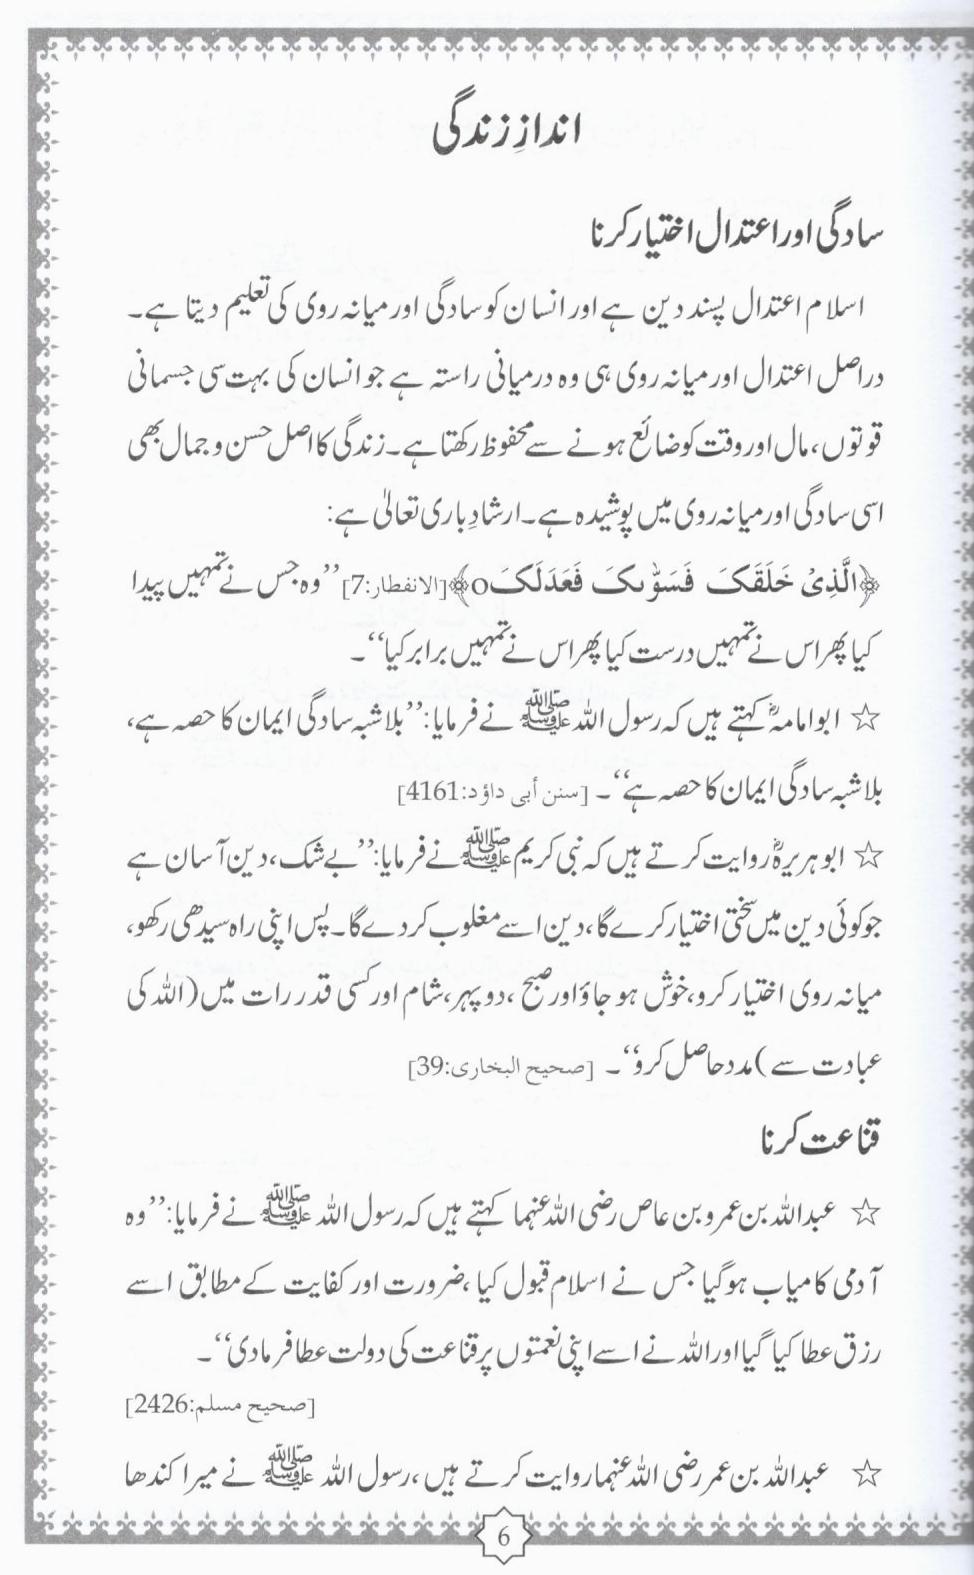 اندازِ زندگی
سادگی اور اعتدال اختیار کرنا
اسلام اعتدال پسند دین ہے اور انسان کو سادگی اور میانہ روی کی تعلیم دیتا ہے۔
دراصل اعتدال اور میانہ روی ہی وہ درمیانی راستہ ہے جو انسان کی بہت سی جسمانی
قوتوں، مال اور وقت کو ضائع ہونے سے محفوظ رکھتا ہے۔ زندگی کا اصل حسن و جمال بھی
اسی سادگی اور میانہ روی میں پوشیدہ ہے۔ ارشادِ باری تعالیٰ ہے:
﴿الَّذِیْ خَلَقَکَ فَسَوّٰىکَ فَعَدَلَکَo﴾ [الانفطار:7] ’’وہ جس نے تمہیں پیدا
کیا پھر اس نے تمہیں درست کیا پھر اس نے تمہیں برابر کیا‘‘۔
☆ ابوامامہؓ کہتے ہیں کہ رسول اللہ ﷺ نے فرمایا: ’’بلاشبہ سادگی ایمان کا حصہ ہے،
بلاشبہ سادگی ایمان کا حصہ ہے‘‘۔ [سنن أبی داؤد:4161]
☆ ابو ہریرہؓ روایت کرتے ہیں کہ نبی کریم ﷺ نے فرمایا: ’’بے شک، دین آسان ہے
جو کوئی دین میں سختی اختیار کرے گا، دین اسے مغلوب کر دے گا۔ پس اپنی راہ سیدھی رکھو،
میانہ روی اختیار کرو، خوش ہو جاؤ اور صبح، دوپہر، شام اور کسی قدر رات میں (اللہ کی
عبادت سے) مدد حاصل کرو‘‘۔ [صحیح البخاری:39]
قناعت کرنا
☆ عبداللہ بن عمرو بن عاص رضی اللہ عنہما کہتے ہیں کہ رسول اللہ ﷺ نے فرمایا: ’’وہ
آدمی کامیاب ہوگیا جس نے اسلام قبول کیا، ضرورت اور کفایت کے مطابق اسے
رزق عطا کیا گیا اور اللہ نے اسے اپنی نعمتوں پر قناعت کی دولت عطا فرما دی‘‘۔
[صحیح مسلم:2426]
☆ عبداللہ بن عمر رضی اللہ عنہما روایت کرتے ہیں، رسول اللہ ﷺ نے میرا کندھا
6